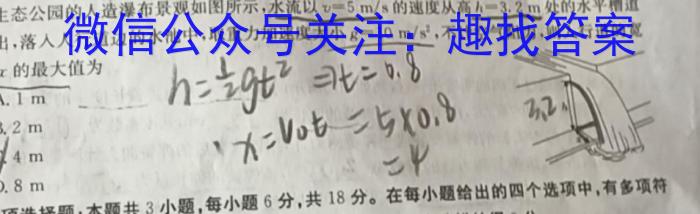 生态公园的人造瀑布景观如图所示,水流以v=5 m/s的速度从高h=3.2 m处的水平槽道
出,落入
微信公众号关注：趣找答案
x的最大值为
A. 1 m
B. 2 m
4 m
D. 8 m
h=½gt² ⇒t=0.8
x=v₀t=5×0.8
=4
3.2
本题共3小题,每小题6分,共18分。在每小题给出的四个选项中,有多项符